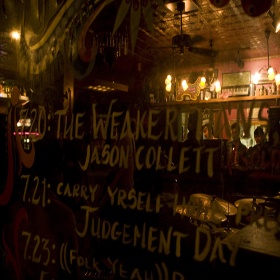 7.20: THE WEAKERTHANS
JASON COLLETT
7.21: CARRY YRSELF
JUDGEMENT DAY
7.23: ((FOLK YEAH))